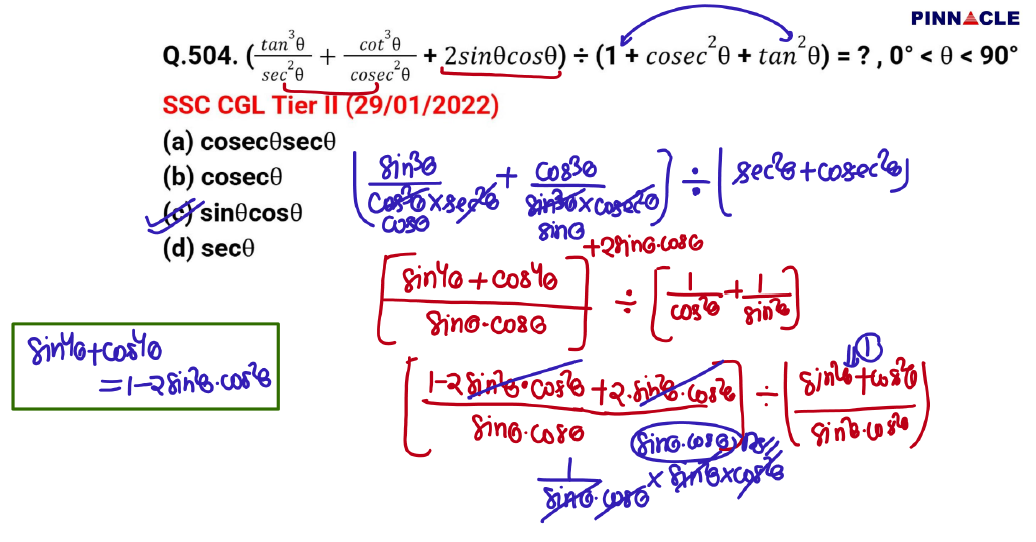 PINNACLE
Q.504. (tan³θ/sec²θ + cot³θ/cosec²θ + 2sinθcosθ) ÷ (1 + cosec²θ + tan²θ) = ? , 0° < θ < 90°
SSC CGL Tier II (29/01/2022)
(a) cosecθsecθ
(b) cosecθ
(c) sinθcosθ
(d) secθ
[sin³θ/cos³θ×sec²θ + cos³θ/sin³θ×cosec²θ] ÷ [sec²θ+cosec²θ]
cosθ sinθ
+2sinθ.cosθ
[sin⁴θ+cos⁴θ/sinθ.cosθ] ÷ [1/cos²θ + 1/sin²θ]
sin⁴θ+cos⁴θ
=1-2sin²θ.cos²θ
1
[1-2sin²θ.cos²θ+2.sin²θ.cos²θ/sinθ.cosθ] ÷ [sin²θ+cos²θ/sin²θ.cos²θ]
sinθ.cosθ
1/sinθ.cosθ × sin²θ×cos²θ